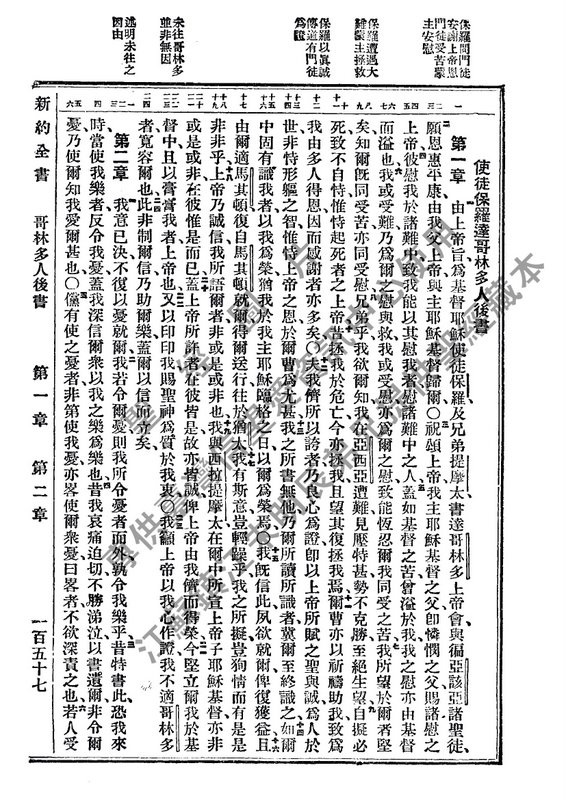 保羅問門
安謝上帝恩
門徒受苦蒙
主安慰
保羅遭遇大
難蒙主拯救
保羅以眞誠
傳道有門徒
爲證
未往哥林多
並非無因
述明未往之
因由
使徒保羅達哥林多人後書
第一章 由上帝旨爲基督耶穌使徒保羅及兄弟提摩太書達哥林多上帝會與徧亞該亞諸聖徒
願恩惠平康由我父上帝與主耶穌基督歸爾〇祝頌上帝我主耶穌基督之父卽憐憫之父賜諸慰之
上帝彼慰我於諸難中致我能以其慰我者慰諸難中之人蓋如基督之苦曾溢於我我之慰亦由基督
而溢也我或受難乃爲爾之慰與救我或受慰亦爲爾之慰致能恆忍爾我同受之苦我所望於爾者堅
矣知爾旣同受苦亦同受慰兄弟乎我欲爾知我在亞西亞遭難見壓特甚勢不克勝至絕生望自擬必
死致不自恃惟恃起死者之上帝昔拯我於危亡今亦拯我且望其復拯我焉爾曹亦以祈禱助我致爲
我由多人得恩因而感謝者亦多矣〇夫我儕所以誇者乃良心爲證卽以上帝所賦之聖與誠爲人於
世非恃形軀之智惟恃上帝之恩於爾曹爲尤甚我之所書無他乃爾所讀所識者冀爾至終識之如爾
中固有識我者以我爲榮猶我於我主耶穌臨格之日以爾爲榮焉〇我旣信此夙欲就爾俾復獲益且
由爾適馬其頓復自馬其頓就爾得爾送行往於猶太我有斯意豈輕躁乎我之所擬豈狥情而有是是
非非乎上帝乃誠信我所語爾者非或是或非也我與西拉提摩太在爾中所宣上帝子耶穌基督亦非
或是或非在彼惟是而已蓋上帝所許者在彼皆是故亦皆誠俾上帝由我儕而得榮今堅立爾我於基
督中且以膏膏我者上帝也又以印印我賜聖神爲質於我衷〇我籲上帝以我心作證我不適哥林多
者寬容爾也此非制爾信乃助爾樂蓋爾以信而立矣
第二章 我意已決不復以憂就爾我若令爾憂則我所令憂者而外孰令我樂乎昔特書此恐我來
時當使我樂者反令我憂蓋我深信爾衆以我之樂爲樂也昔我哀痛迫切不勝涕泣以書遺爾非令爾
憂乃使爾知我愛爾甚也〇儻有使之憂者非第使我憂亦畧使爾衆憂曰畧者不欲深責之也若人受
新約全書 哥林多人後書 第一章 第二章 一百五十七